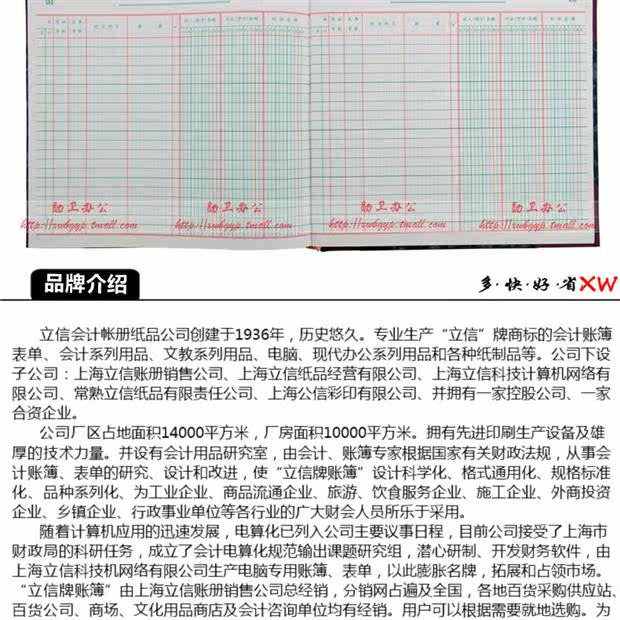 勋卫办公 勋卫办公 勋卫办公 勋卫办公
http://xwbgyp.tmall.com http://xwbgyp.tmall.com http://xwbgyp.tmall.com http://xwbgyp.tmall.com
品牌介绍
多·快·好·省XW
立信会计帐册纸品公司创建于1936年，历史悠久。专业生产“立信”牌商标的会计账簿
表单、会计系列用品、文教系列用品、电脑、现代办公系列用品和各种纸制品等。公司下设
子公司：上海立信账册销售公司、上海立信纸品经营有限公司、上海立信科技计算机网络有
限公司、常熟立信纸品有限责任公司、上海公信彩印有限公司、并拥有一家控股公司、一家
合资企业。
公司厂区占地面积14000平方米，厂房面积10000平方米。拥有先进印刷生产设备及雄
厚的技术力量。并设有会计用品研究室，由会计、账簿专家根据国家有关财政法规，从事会
计账簿、表单的研究、设计和改进，使“立信牌账簿”设计科学化、格式通用化、规格标准
化、品种系列化、为工业企业、商品流通企业、旅游、饮食服务企业、施工企业、外商投资
企业、乡镇企业、行政事业单位等各行业的广大财会人员所乐于采用。
随着计算机应用的迅速发展，电算化已列入公司主要议事日程，目前公司接受了上海市
财政局的科研任务，成立了会计电算化规范输出课题研究组，潜心研制、开发财务软件，由
上海立信科技机网络有限公司生产电脑专用账簿、表单，以此膨胀名牌，拓展和占领市场。
“立信牌账簿”由上海立信账册销售公司总经销，分销网占遍及全国，各地百货采购供应站、
百货公司、商场、文化用品商店及会计咨询单位均有经销。用户可以根据需要就地选购。为